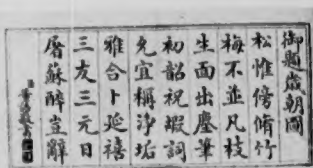 御題歲朝圖
松惟傍脩竹
梅不並凡枝
生面出塵筆
初韶祝嘏詞
免宜稱淨垢
雅合卜延禧
三友三元日
屠蘇醉豈辭